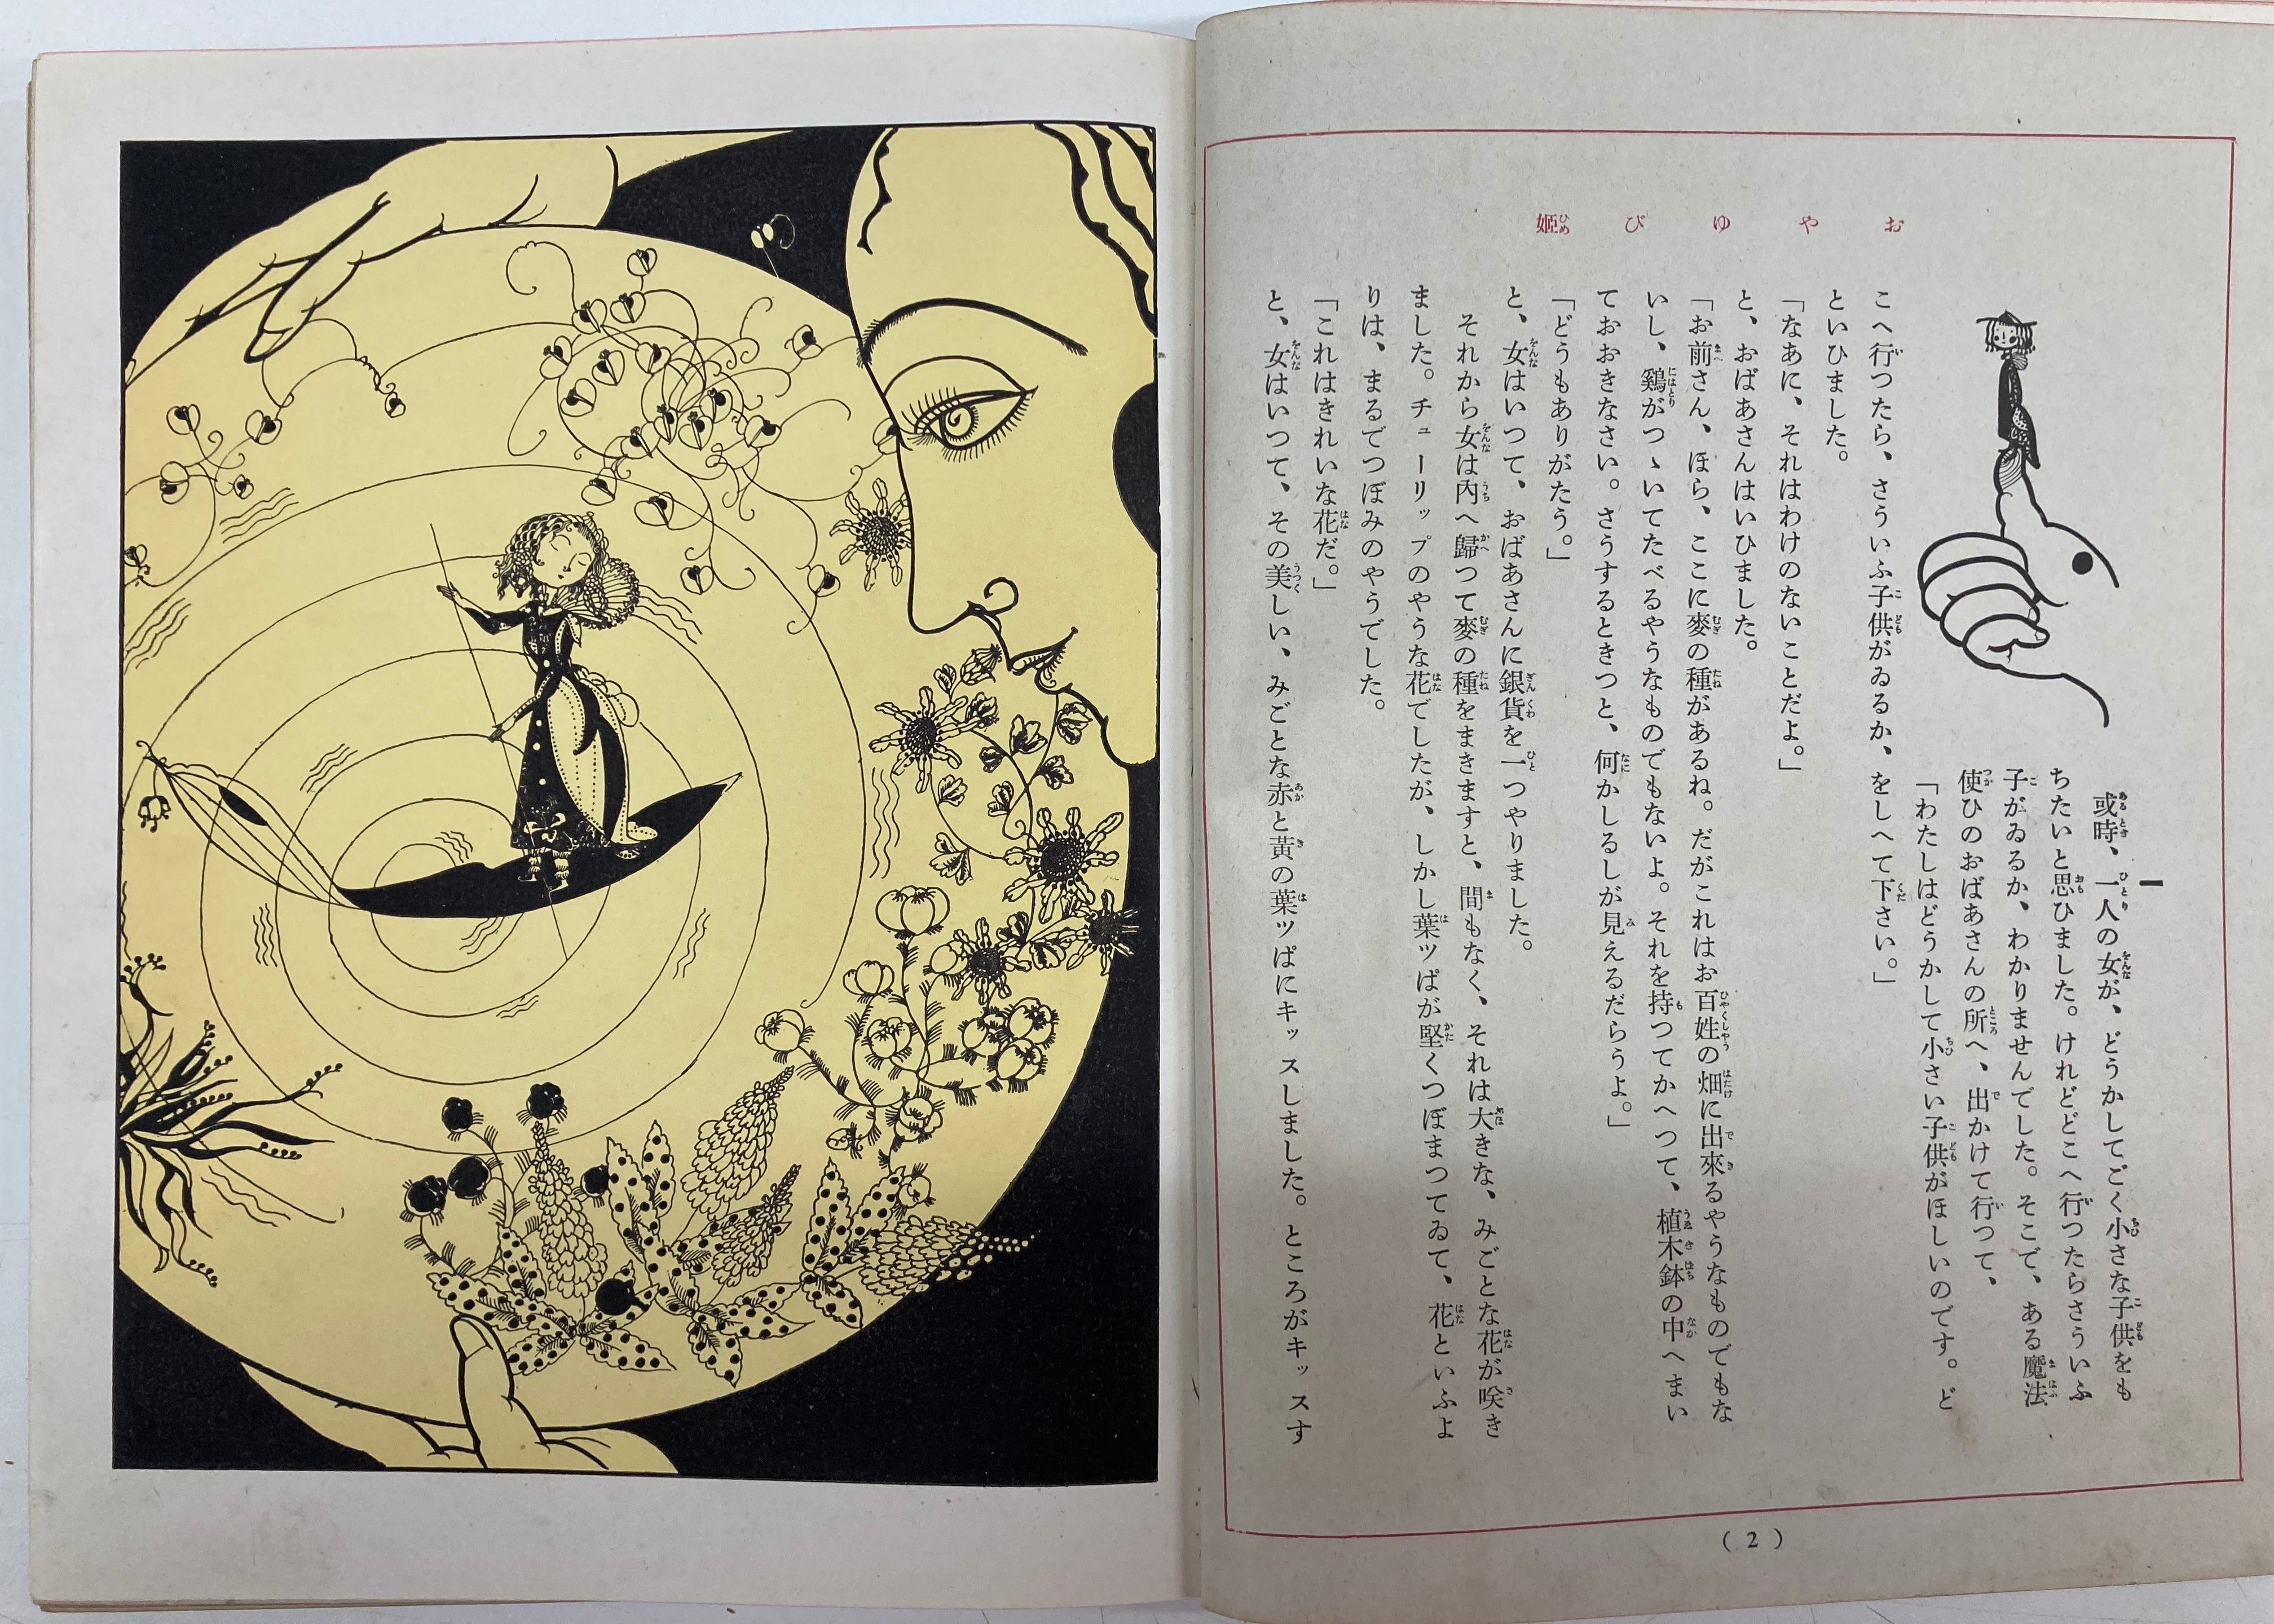 おやゆび姫
一
或時、一人の女が、どうかしてごく小さな子供をも
ちたいと思ひました。けれどどこへ行つたらさういふ
子がゐるか、わかりませんでした。そこで、ある魔法
使ひのおばあさんの所へ、出かけて行つて、
「わたしはどうかして小さい子供がほしいのです。ど
こへ行つたら、さういふ子供がゐるか、をしへて下さい。」
といひました。
「なあに、それはわけのないことだよ。」
と、おばあさんはいひました。
「お前さん、ほら、ここに麥の種があるね。だがこれはお百姓の畑に出來るやうなものでもな
いし、鷄がつゝいてたべるやうなものでもないよ。それを持つてかへつて、植木鉢の中へまい
ておおきなさい。さうするときつと、何かしるしが見えるだらうよ。」
「どうもありがたう。」
と、女はいつて、おばあさんに銀貨を一つやりました。
それから女は內へ歸つて麥の種をまきますと、間もなく、それは大きな、みごとな花が咲き
ました。チューリップのやうな花でしたが、しかし葉ツぱが堅くつぼまつてゐて、花といふよ
りは、まるでつぼみのやうでした。
「これはきれいな花だ。」
と、女はいつて、その美しい、みごとな赤と黃の葉ツぱにキッスしました。ところがキッスす
(2)